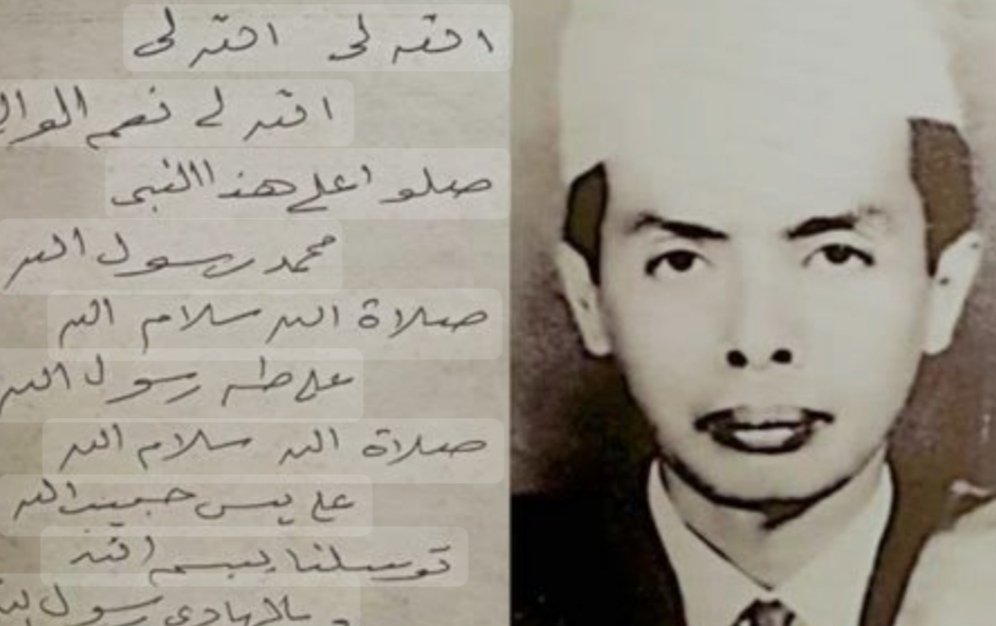 الله لى الله لى
الله لى نعم الوا
صلو اعلى هذا النبى
محمد رسول الله
صلاة الله سلام الله
على طه رسول الله
صلاة الله سلام الله
على يس حبيب الله
توسلنا ببسم الله
و بالهادى رسول الله